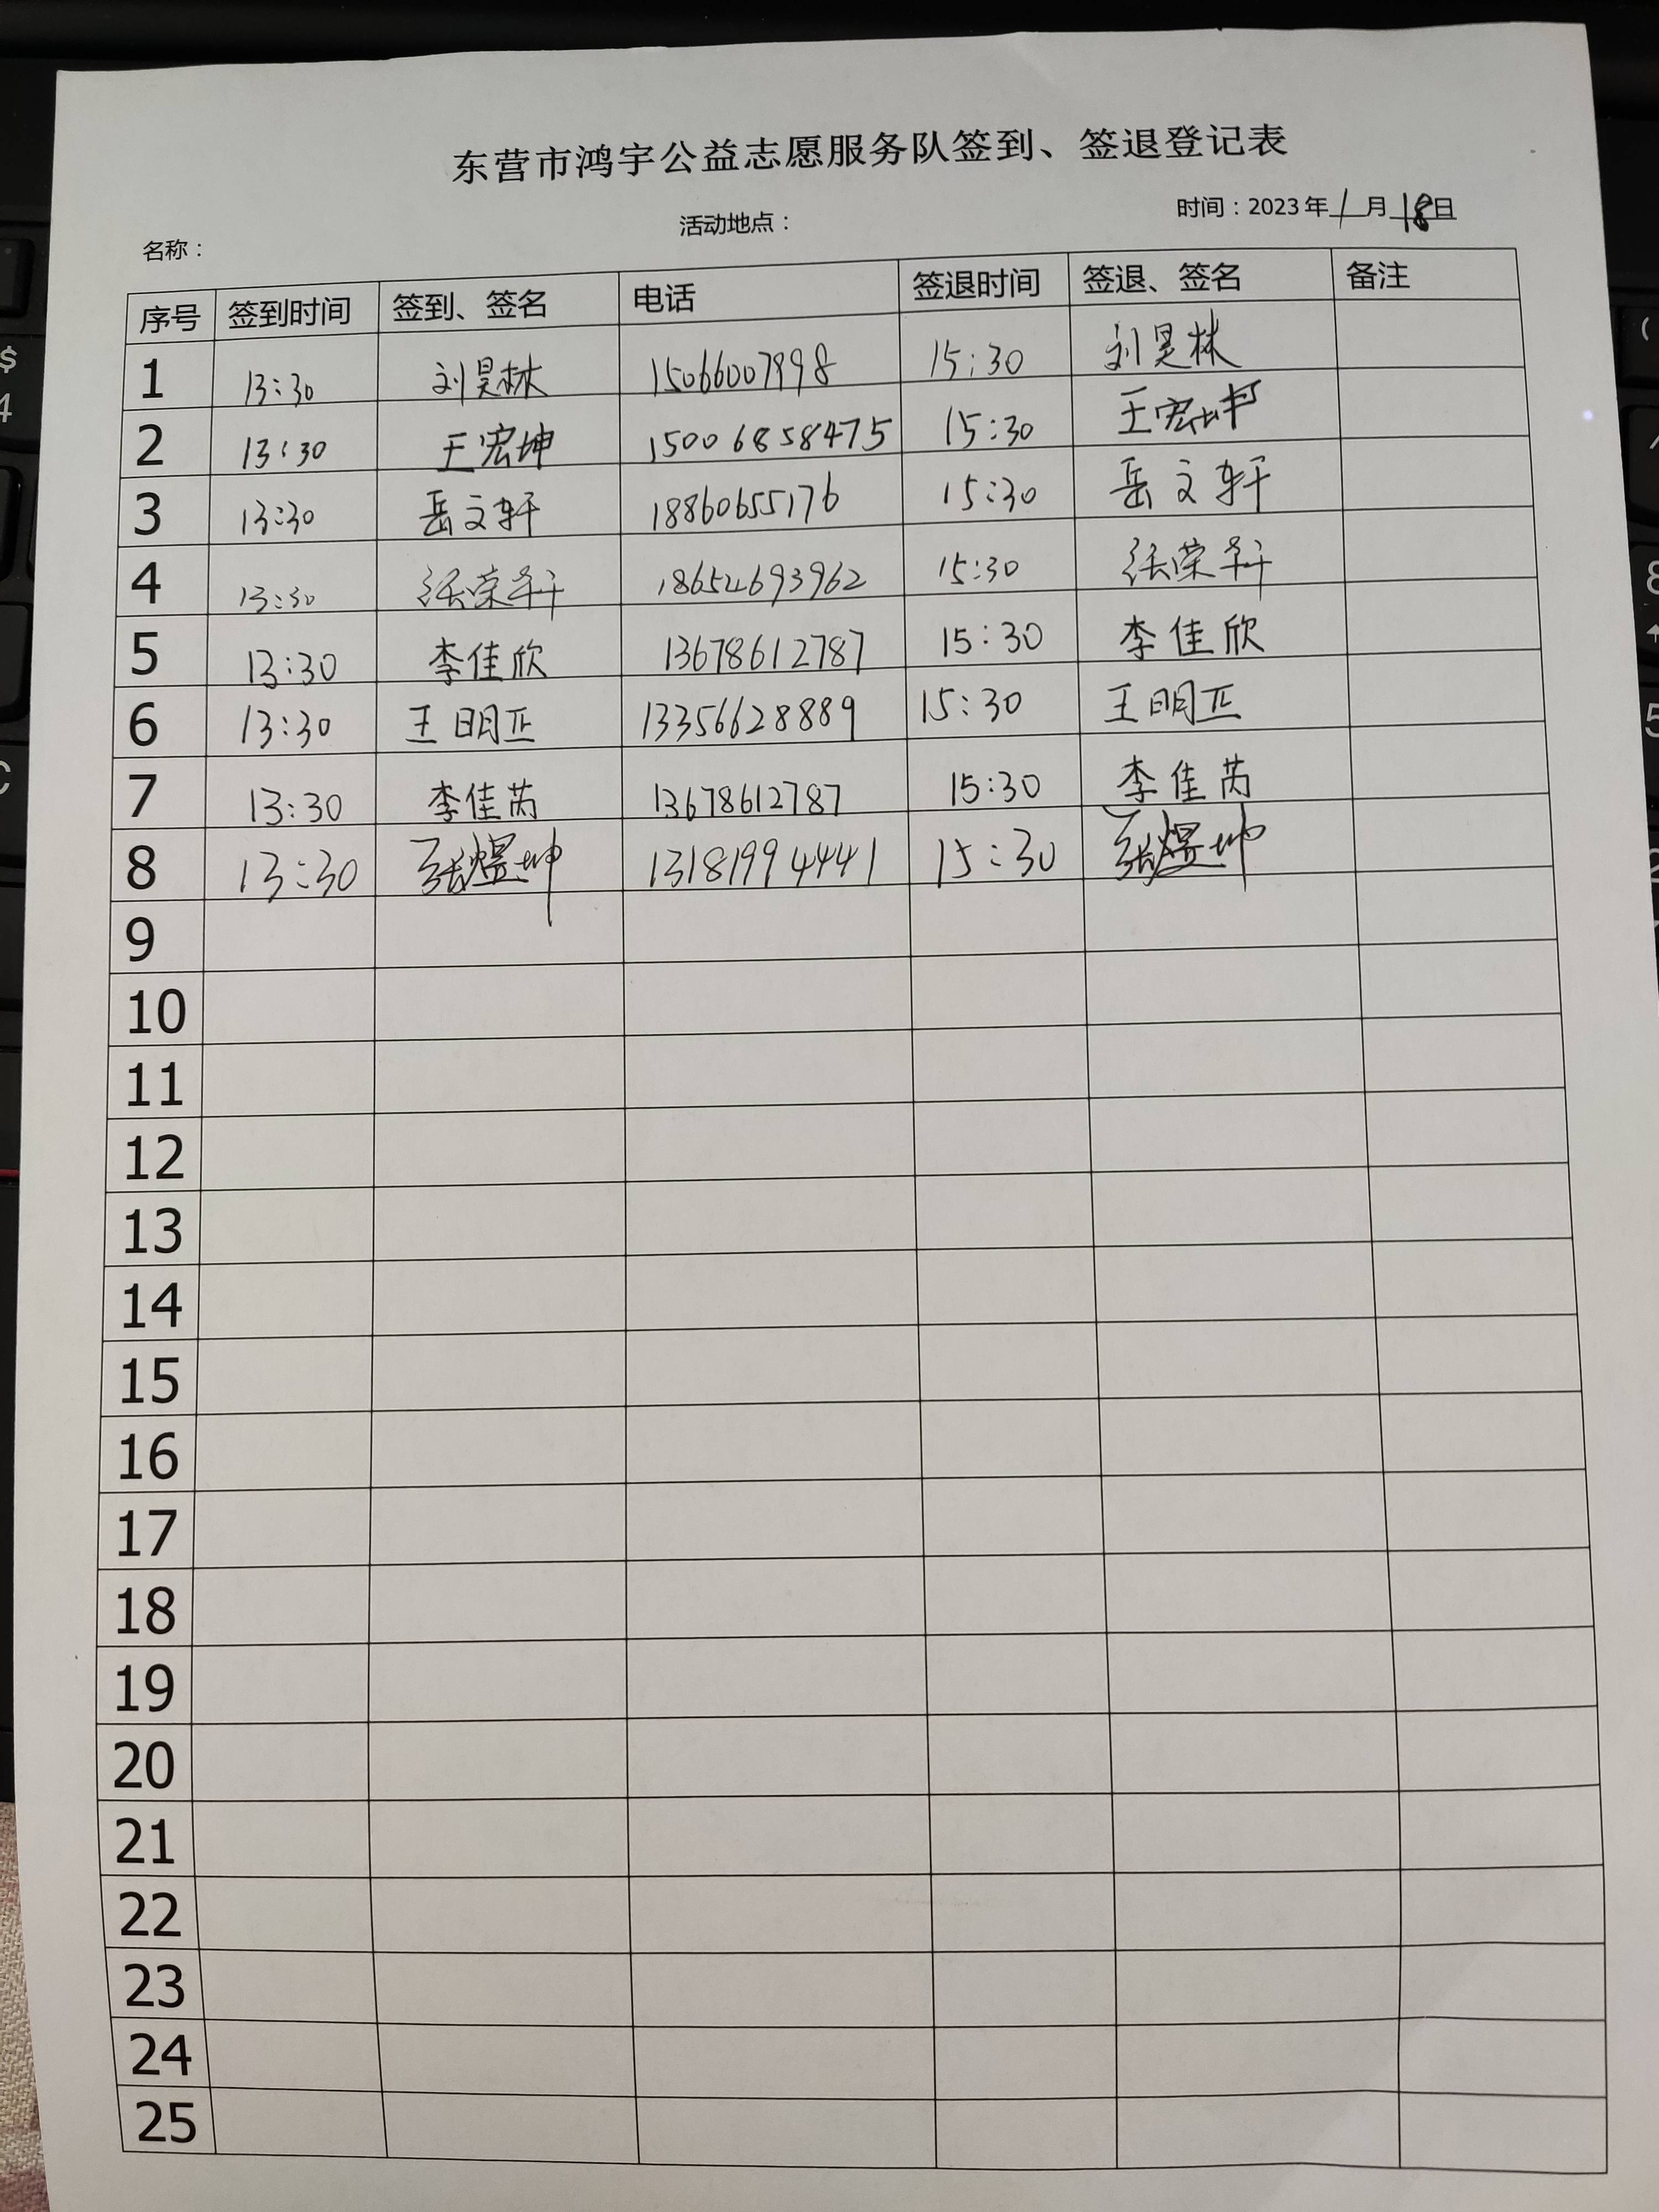 东营市鸿宇公益志愿服务队签到、签退登记表
名称： 活动地点： 时间：2023年1月18日
序号 签到时间 签到、签名 电话 签退时间 签退、签名 备注
1 13:30 刘昊林 15066007998 15:30 刘昊林
2 13:30 王宏坤 15006858475 15:30 王宏坤
3 13:30 岳文轩 18860655176 15:30 岳文轩
4 13:30 张荣轩 18654693962 15:30 张荣轩
5 13:30 李佳欣 13678612787 15:30 李佳欣
6 13:30 王明正 13356628889 15:30 王明正
7 13:30 李佳芮 13678612787 15:30 李佳芮
8 13:30 张煜坤 13181994441 15:30 张煜坤
9
10
11
12
13
14
15
16
17
18
19
20
21
22
23
24
25